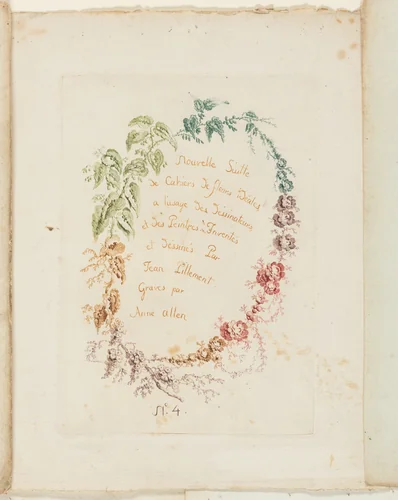 Nouvelle Suitte
De Cahiers De fleurs Idéales
a L'usage Des Dessinateurs
et Des Peintres Inventés
et Dessinés Par
Jean Pillement
Gravés par
Anne allen
N.º 4.